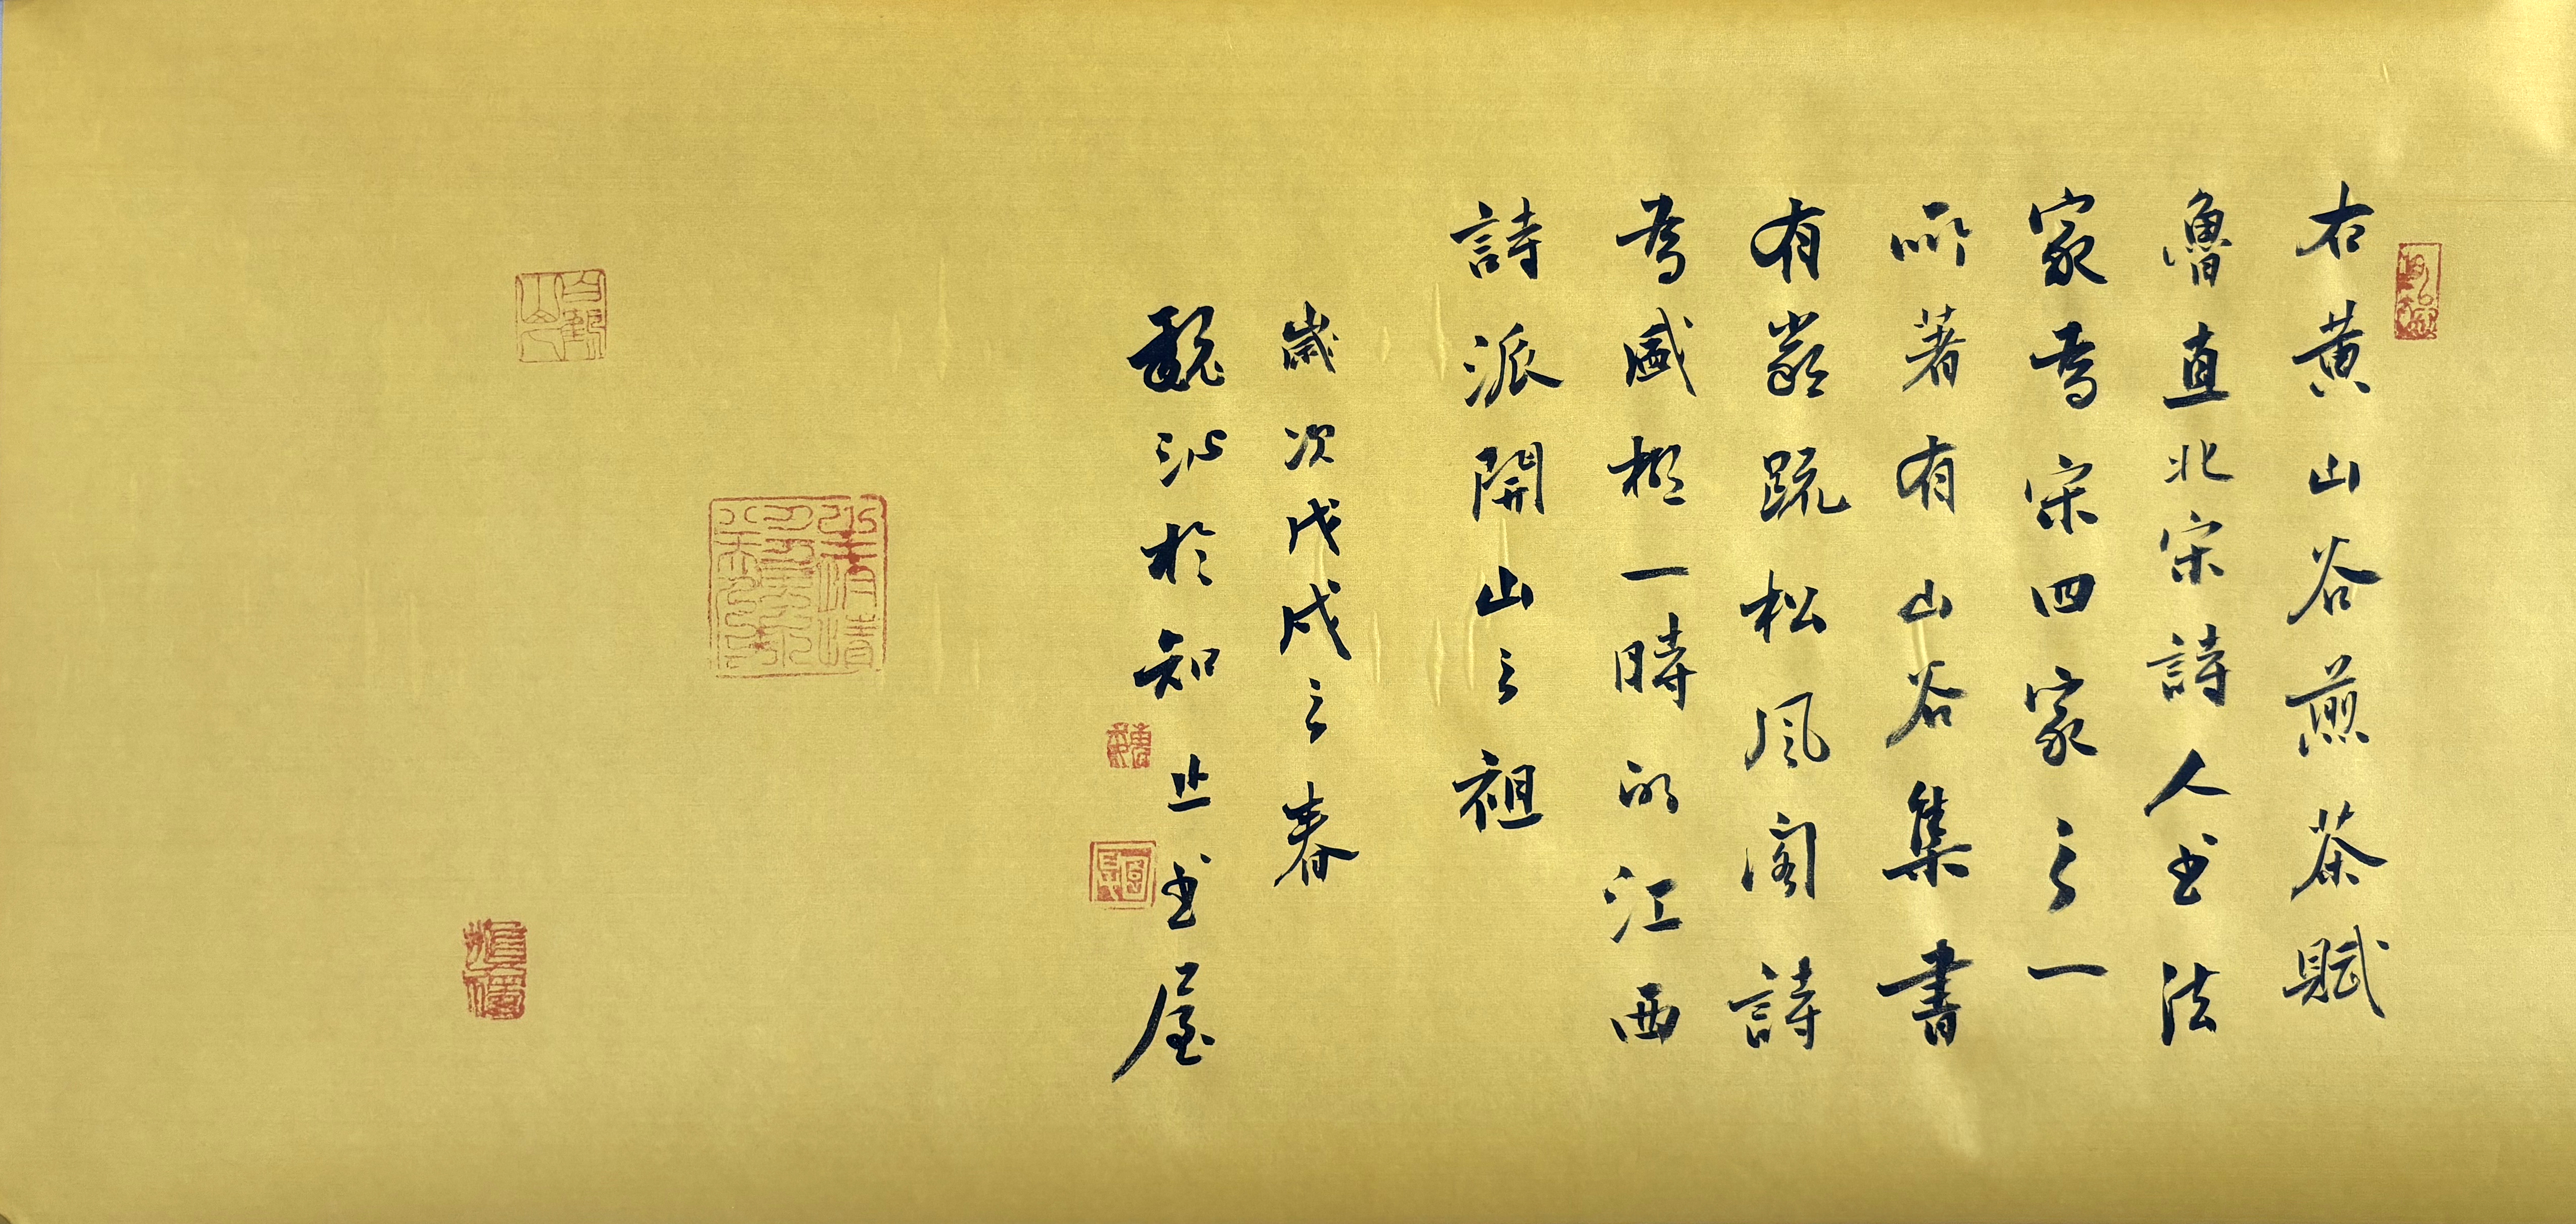 右黄山谷煎茶賦
魯直北宋詩人书法
家為宋四家之一
所著有山谷集書
有嚴疏松風阁詩
為盛極一時的江西
詩派開山之祖
歲次戊戌之春
魏沁於知止书屋